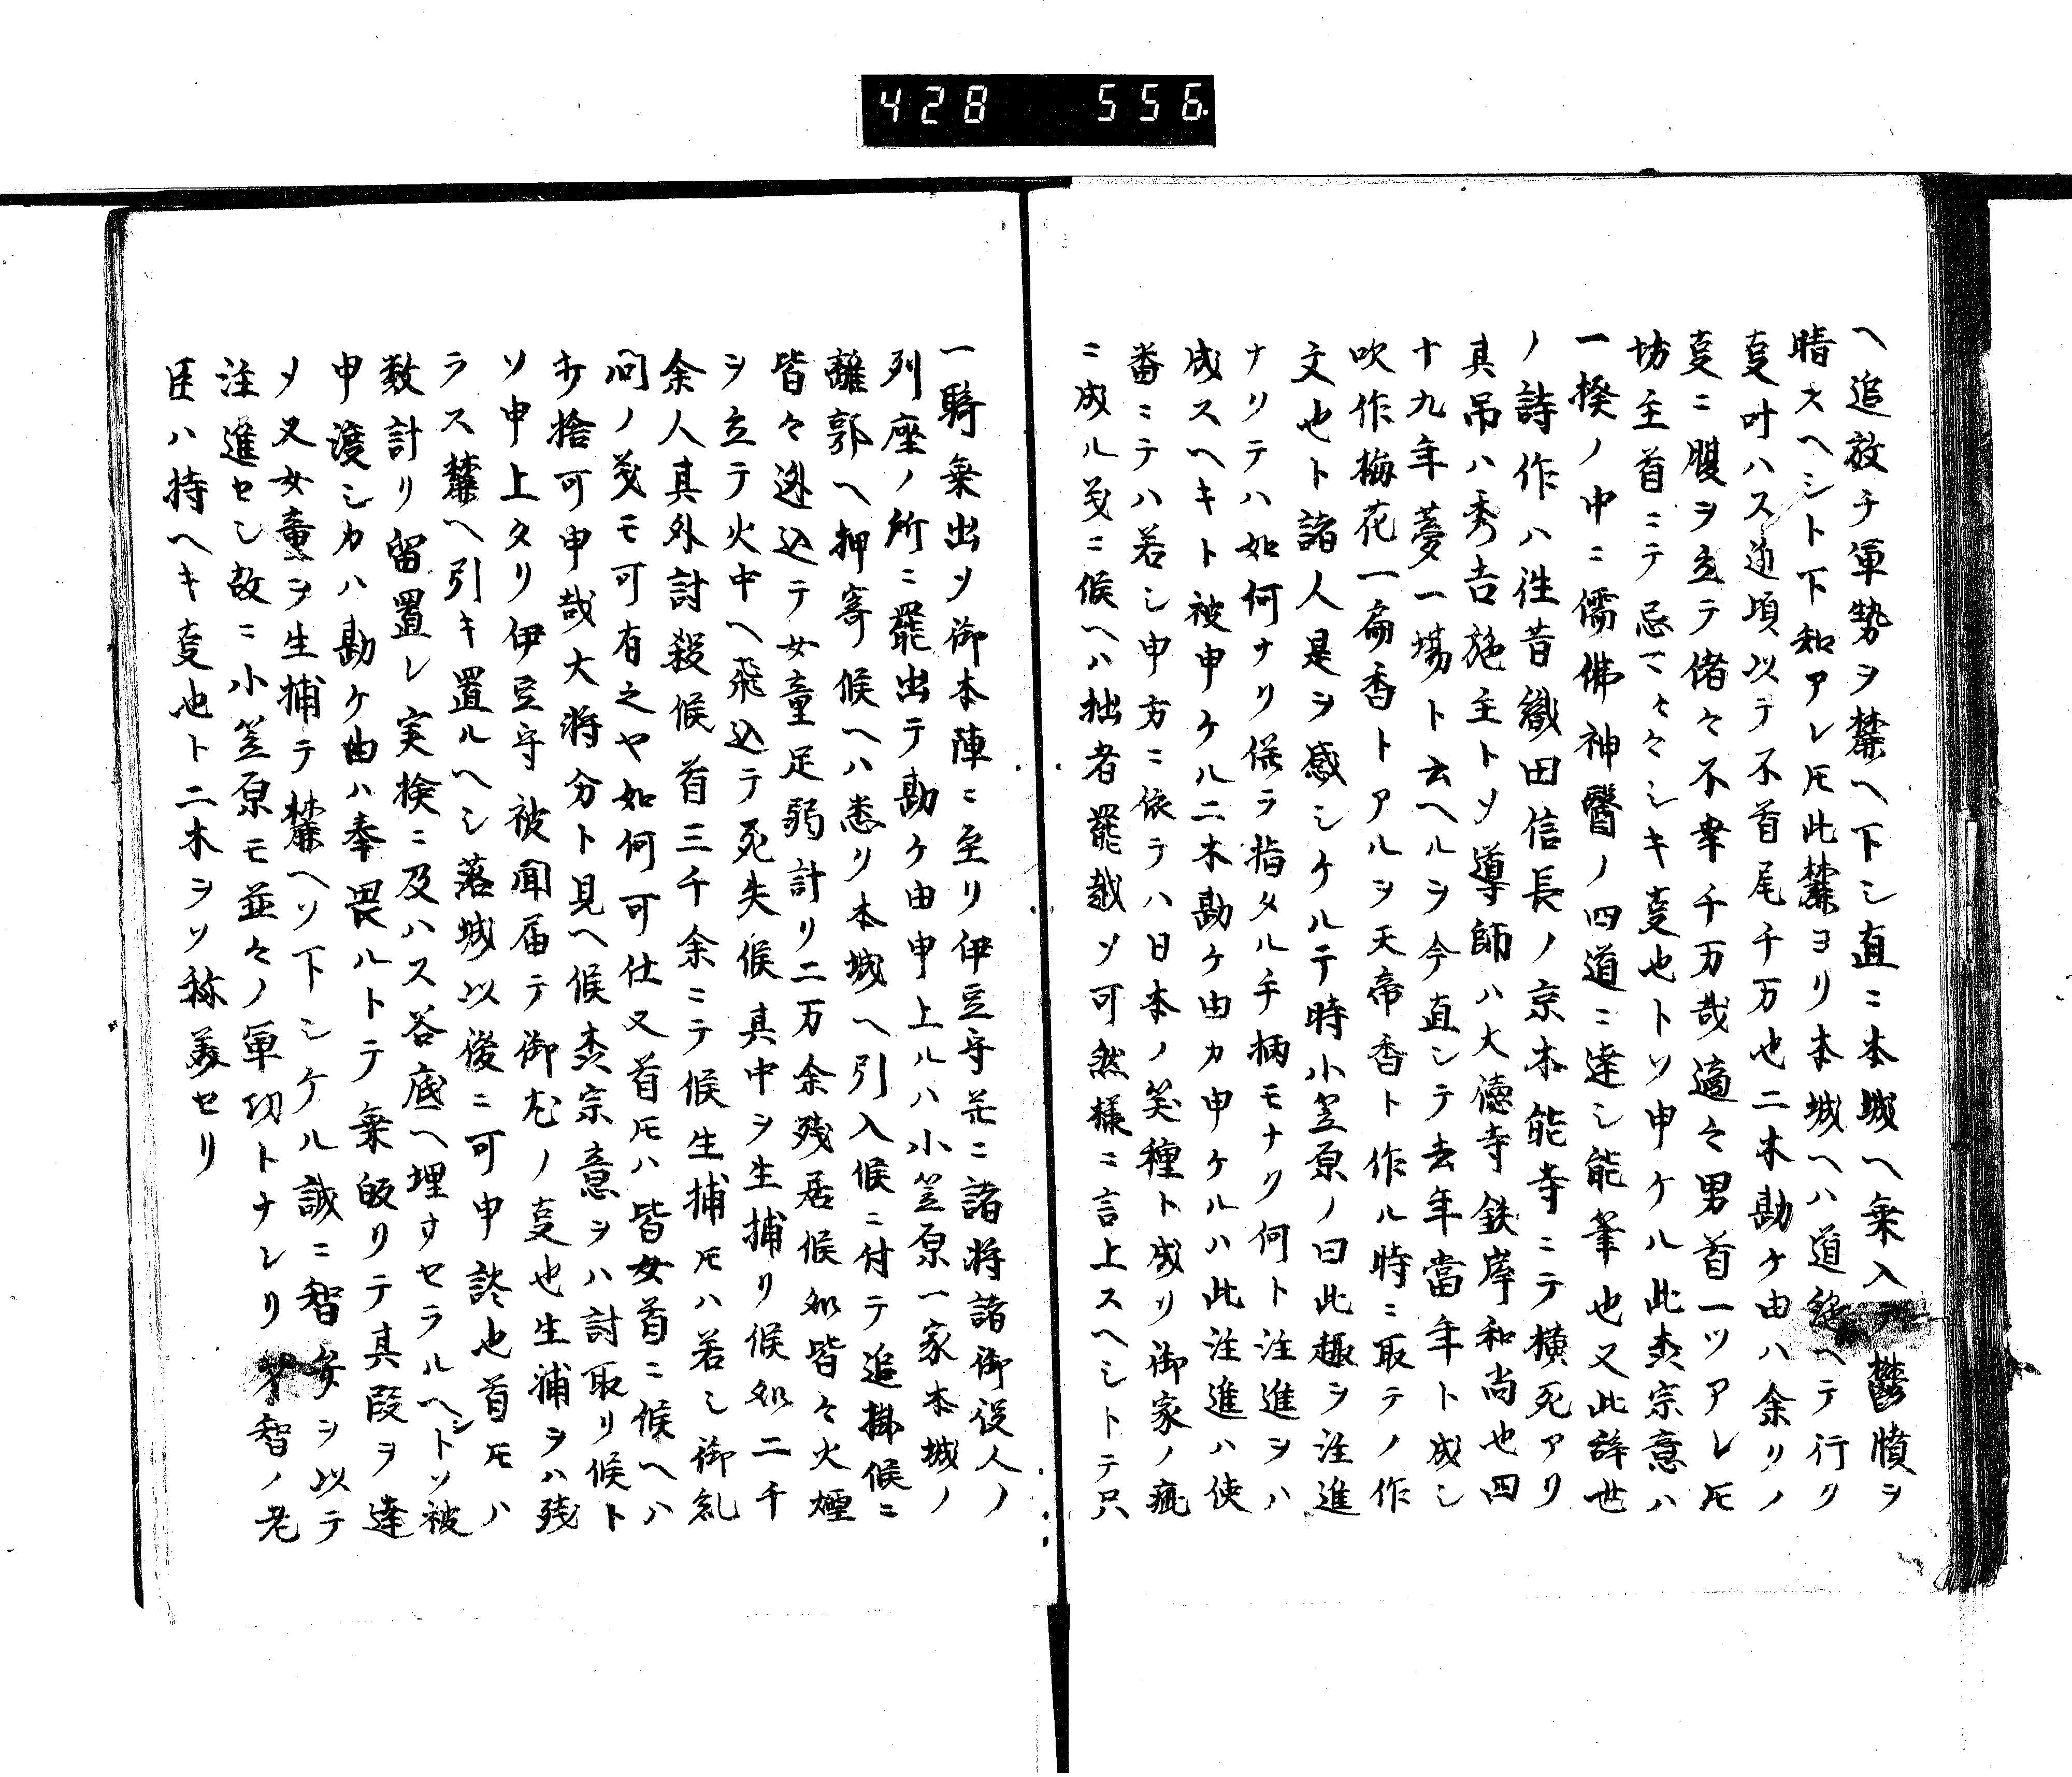 428 556
ヘ追放チ軍勢ヲ麓ヘ下シ直ニ本城ヘ乗入テ欝憤ヲ
晴スヘシト下知アレ𪜈此麓ヨリ本城ヘハ道絶ヘテ行ク
叓叶ハス近頃以テ不首尾千万也二木勘ケ由ハ余リノ
叓ニ腹ヲ立テ偖々不幸千万哉適々男首一ツアレ𪜈
坊主首ニテ忌マ々々シキ叓也トソ申ケル此森宗意ハ
一揆ノ中ニ儒佛神醫ノ四道ニ達シ能筆也又此辞世
ノ詩作ハ徃昔織田信長ノ京本能寺ニテ横死アリ
其吊ハ秀吉施主トソ導師ハ大徳寺鉄岸和尚也四
十九年夢一場ト云ヘルヲ今直シテ去年當年ト成シ
吹作梅花一扁香トアルヲ天帝香ト作ル時ニ取テノ作
文也ト諸人是ヲ感シケルテ時小笠原ノ曰此趣ヲ注進
ナリテハ如何ナリ併ラ指タル手柄モナク何ト注進ヲハ
成スヘキト被申ケル二木勘ケ由カ申ケルハ此注進ハ使
番ニテハ若シ申方ニ依テハ日本ノ笑種ト成リ御家ノ瓶
ニ成ル義ニ候ヘハ拙者罷越ソ可然様ニ言上スヘシトテ只
一騎乗出ソ御本陣ニ至リ伊豆守茫ニ諸将諸御役人ノ
列座ノ所ニ罷出テ勘ケ由申上ルハ小笠原一家本城ノ
離郭ヘ押寄候ヘハ悉リ本城ヘ引入候ニ付テ追掛候ニ
皆々逃込テ女童足弱計リ二万余残居候処皆々火煙
ヲ立テ火中ヘ飛込テ死失候其中ヲ生捕リ候処二千
余人其外討殺候首三千余ニテ候生捕𪜈ハ若シ御糺
問ノ義モ可有之ヤ如何可仕又首𪜈ハ皆女首ニ候ヘハ
切捨可申哉大将分ト見ヘ候森宗意ヲハ討取リ候ト
ソ申上タリ伊豆守被聞届テ御尤ノ叓也生浦ヲハ残
ラス麓ヘ引キ置ルヘシ落城以後ニ可申談也首𪜈ハ
数計リ留置レ実検ニ及ハス谷底ヘ埋すセラルヘシトソ被
申渡シカハ勘ケ由ハ奉畏ルトテ乗皈リテ其段ヲ達
メ又女童ヲ生捕テ麓ヘソ下シケル誠ニ智弁ヲ以テ
注進セし故ニ小笠原モ並々ノ軍功トナレリ才智ノ老
臣ハ持ヘキ叓也ト二木ヲソ称美セリ